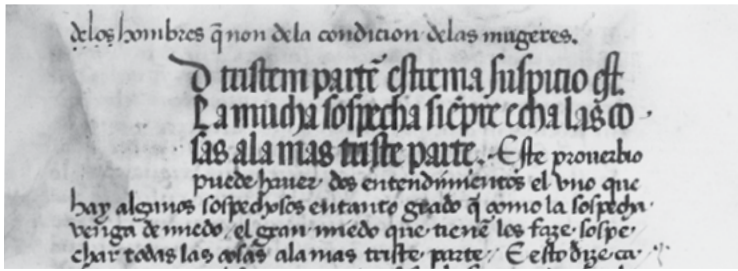 delos hombres q̃ non dela condicion delas mugeres.
D tristem parte᷉ estrema suspitio est.
La mucha sospecha sie᷉pre echa las co
sas ala mas triste parte. Este prouerbio
puede hauer dos entendimientos el vno que
hay algunos sospechosos en tanto grado q̃ como la sospecha
venga de miedo, el gran miedo que tiene᷉ les faze sospe
char todas las cosas ala mas triste parte. E esto dize ca